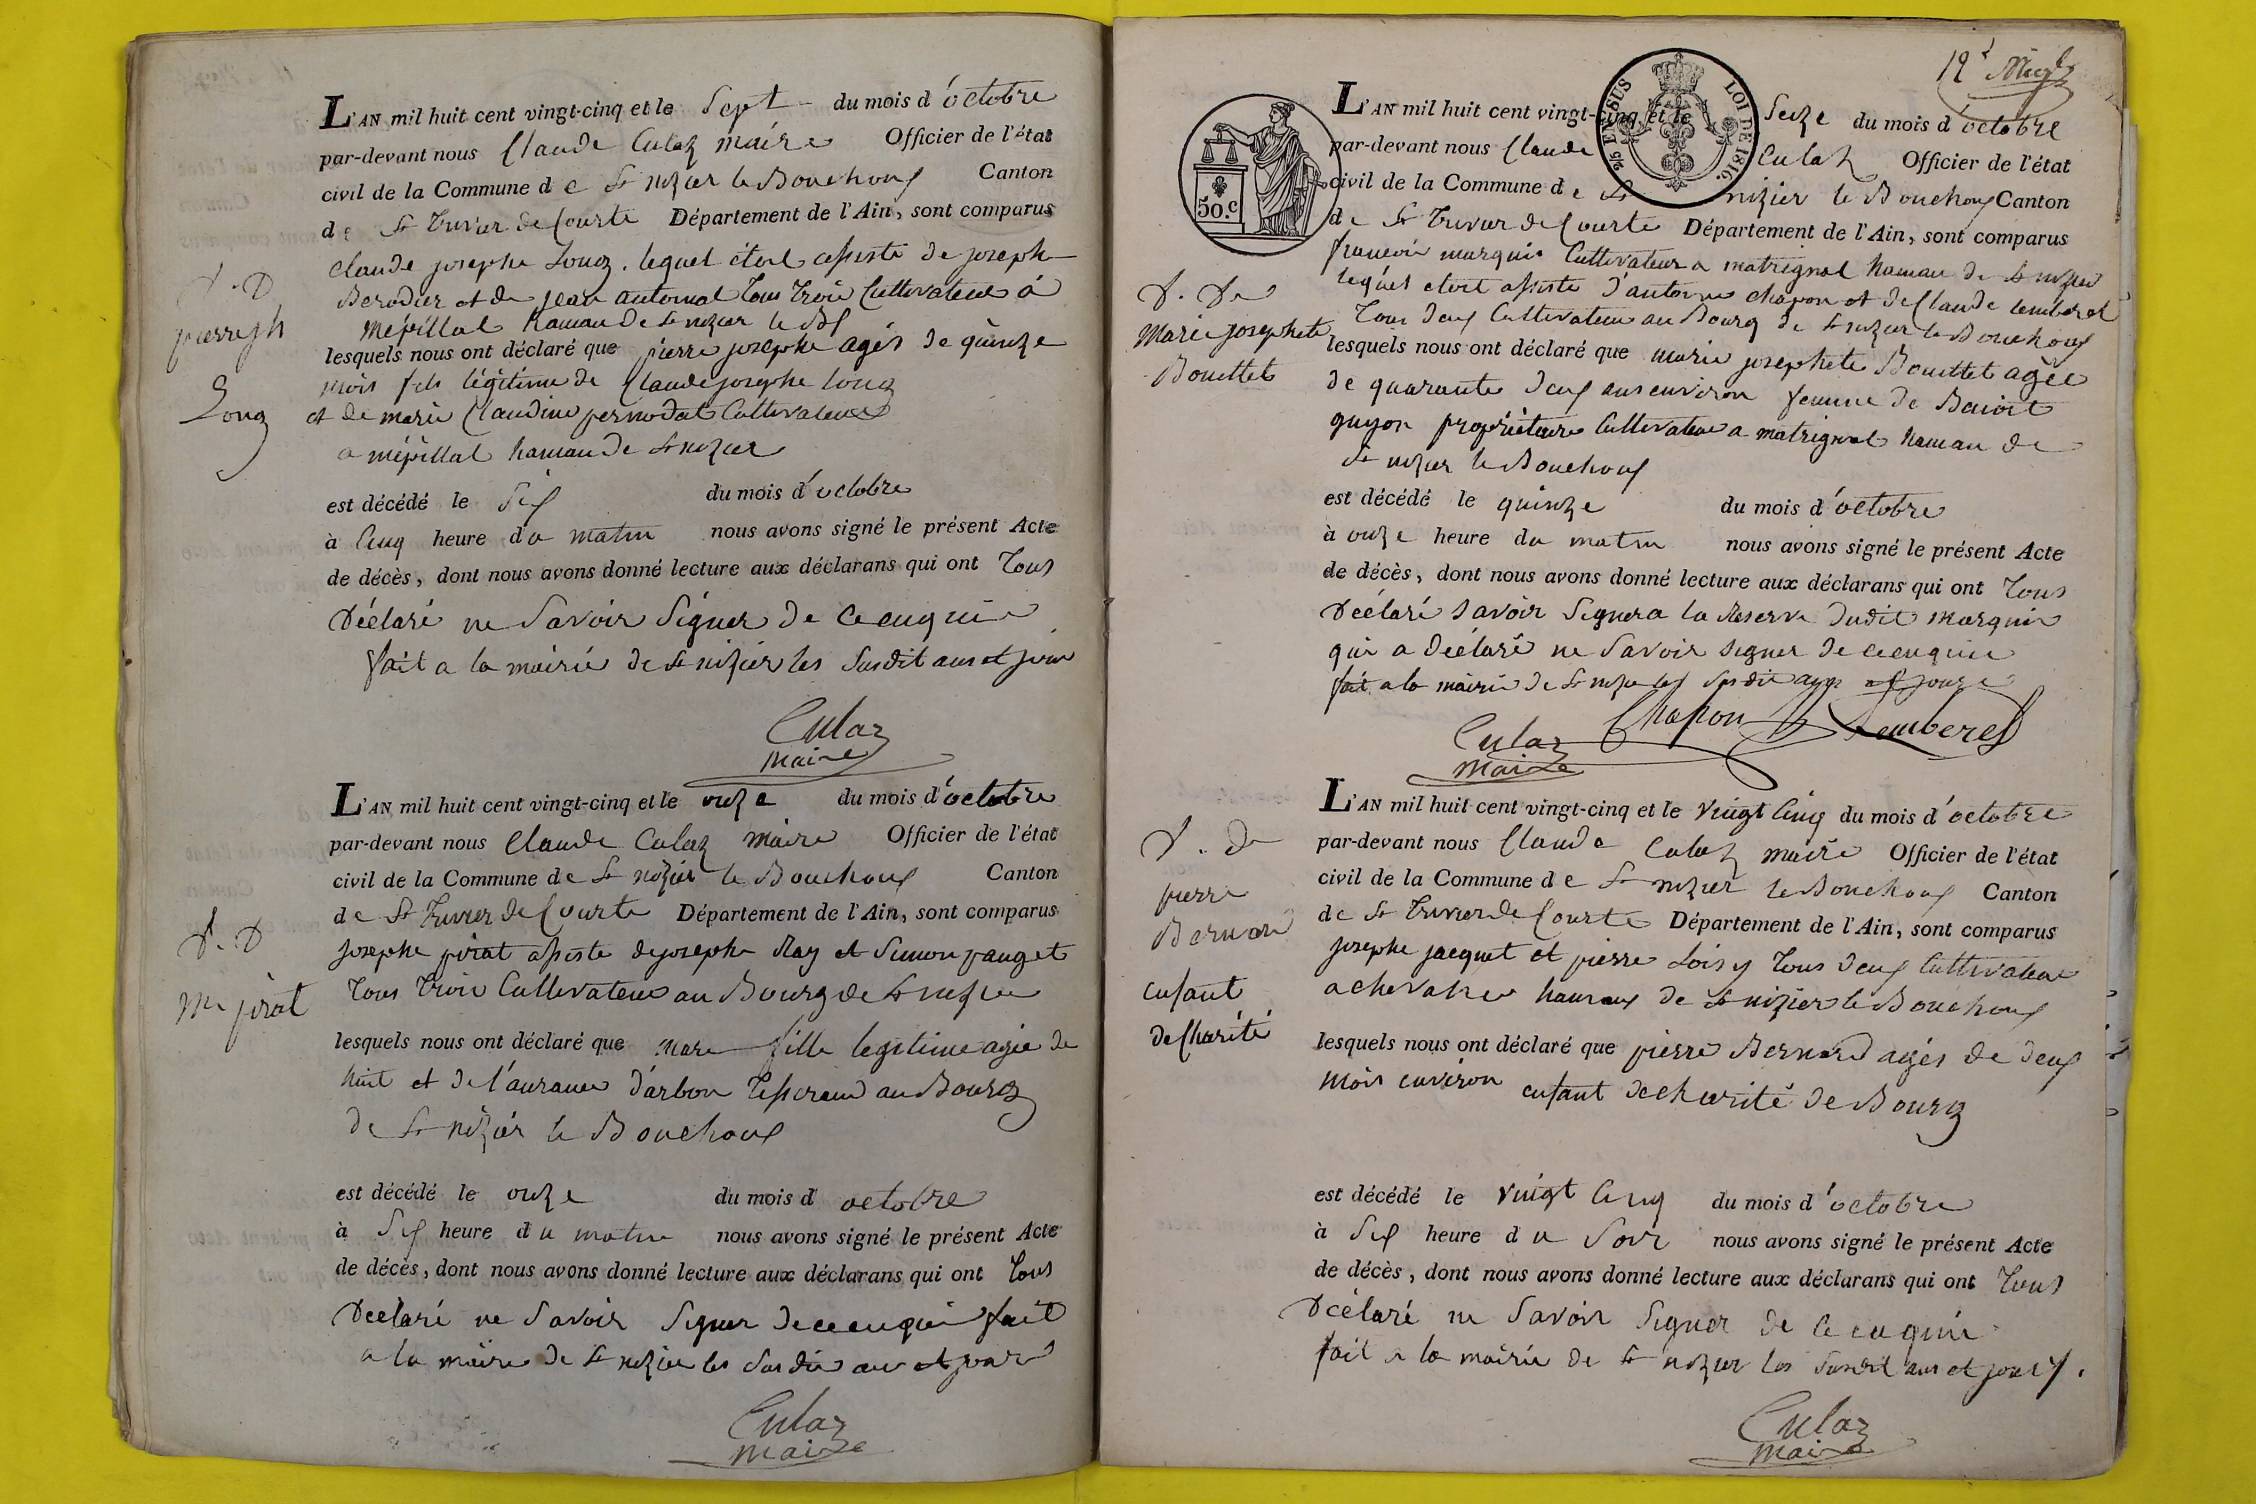 L'AN mil huit cent vingt-cinq et le Sept du mois d'octobre
par-devant nous Claude Culaz maire Officier de l'état
civil de la Commune de St nizier le Bouchoux Canton
de St Trivier de Courte Département de l'Ain, sont comparus
Claude josephe Louz. lequel étoit assisté de joseph
Berodier et de jean antoinal Tous trois Cultivateur à
mépillat hamau de St nizier le
D. D
pierre jh
Louz
lesquels nous ont déclaré que pierre josephe agés de quinze
mois fils légitime de Claude josephe Louz
et de marie Claudine pernodat Cultivateur
a mépillat hamau de St nizier
est décédé le Six du mois d'octobre
à Cinq heure du matin nous avons signé le présent Acte
de décès, dont nous avons donné lecture aux déclarans qui ont Tous
Déclaré ne Savoir Signer de ce enquie
fait a la mairie de St nizier les Susdit ans et jour
Culaz
maire
L'AN mil huit cent vingt-cinq et le onze du mois d'octobre
par-devant nous Claude Culaz maire Officier de l'état
civil de la Commune de St nizier le Bouchoux Canton
de St Trivier de Courte Département de l'Ain, sont comparus
josephe pirat assisté de josephe Ray et Simon pauget
Tous Trois Cultivateur au Bourg de St nizier
D. D
Me pirat
lesquels nous ont déclaré que marie fille legitime agée de
huit et de l'aurance d'arbon Tisserand au Bourg
de St nizier le Bouchoux
est décédé le onze du mois d octobre
à Six heure du matin nous avons signé le présent Acte
de décès, dont nous avons donné lecture aux déclarans qui ont Tous
Déclaré ne Savoir Signer de ce enquie fait
a la mairie de St nizier les Susdit ans et jours
Culaz
maire
12e
50.c
2/5 EN SUS
LOI DE 1816.
L'AN mil huit cent vingt-cinq et le Seize du mois d'octobre
par-devant nous Claude Culaz Officier de l'état
civil de la Commune de St nizier le Bouchoux Canton
de St Trivier de Courte Département de l'Ain, sont comparus
francois marquis Cultivateur a matrignat hamau de St nizier
lequel étoit assisté d'antoine chapon et de Claude Lemberel
Tous deux Cultivateur au Bourg de St nizier le Bouchoux
D. De
Marie josephete
Bouttet
lesquels nous ont déclaré que marie josephete Bouttet agée
de quarante deux ans environ femme de Benoit
guyon propriétaire Cultivateur a matrignat hamau de
St nizier le Bouchoux
est décédé le quinze du mois d'octobre
à onze heure du matin nous avons signé le présent Acte
de décès, dont nous avons donné lecture aux déclarans qui ont Tous
Déclaré Savoir Signer a la Reserve dudit marquis
qui a déclaré ne Savoir signer de ce enquie
fait a la mairie de St nizier les Susdit ans et jours
Culaz Chapon Lemberel
maire
L'AN mil huit cent vingt-cinq et le vingt Cinq du mois d'octobre
par-devant nous Claude Culaz maire Officier de l'état
civil de la Commune de St nizier le Bouchoux Canton
de St Trivier de Courte Département de l'Ain, sont comparus
josephe jacquet et pierre Loisy Tous deux Cultivateur
a hamaux de St nizier le Bouchoux
D. De
pierre
Bernard
enfant
de Charité
lesquels nous ont déclaré que pierre Bernard agés de deux
mois environ enfant de charité de Bourg
est décédé le vingt Cinq du mois d'octobre
à Six heure du Soir nous avons signé le présent Acte
de décès, dont nous avons donné lecture aux déclarans qui ont Tous
Déclaré ne Savoir Signer de ce enquie
fait a la mairie de St nizier les Susdit ans et jours.
Culaz
maire